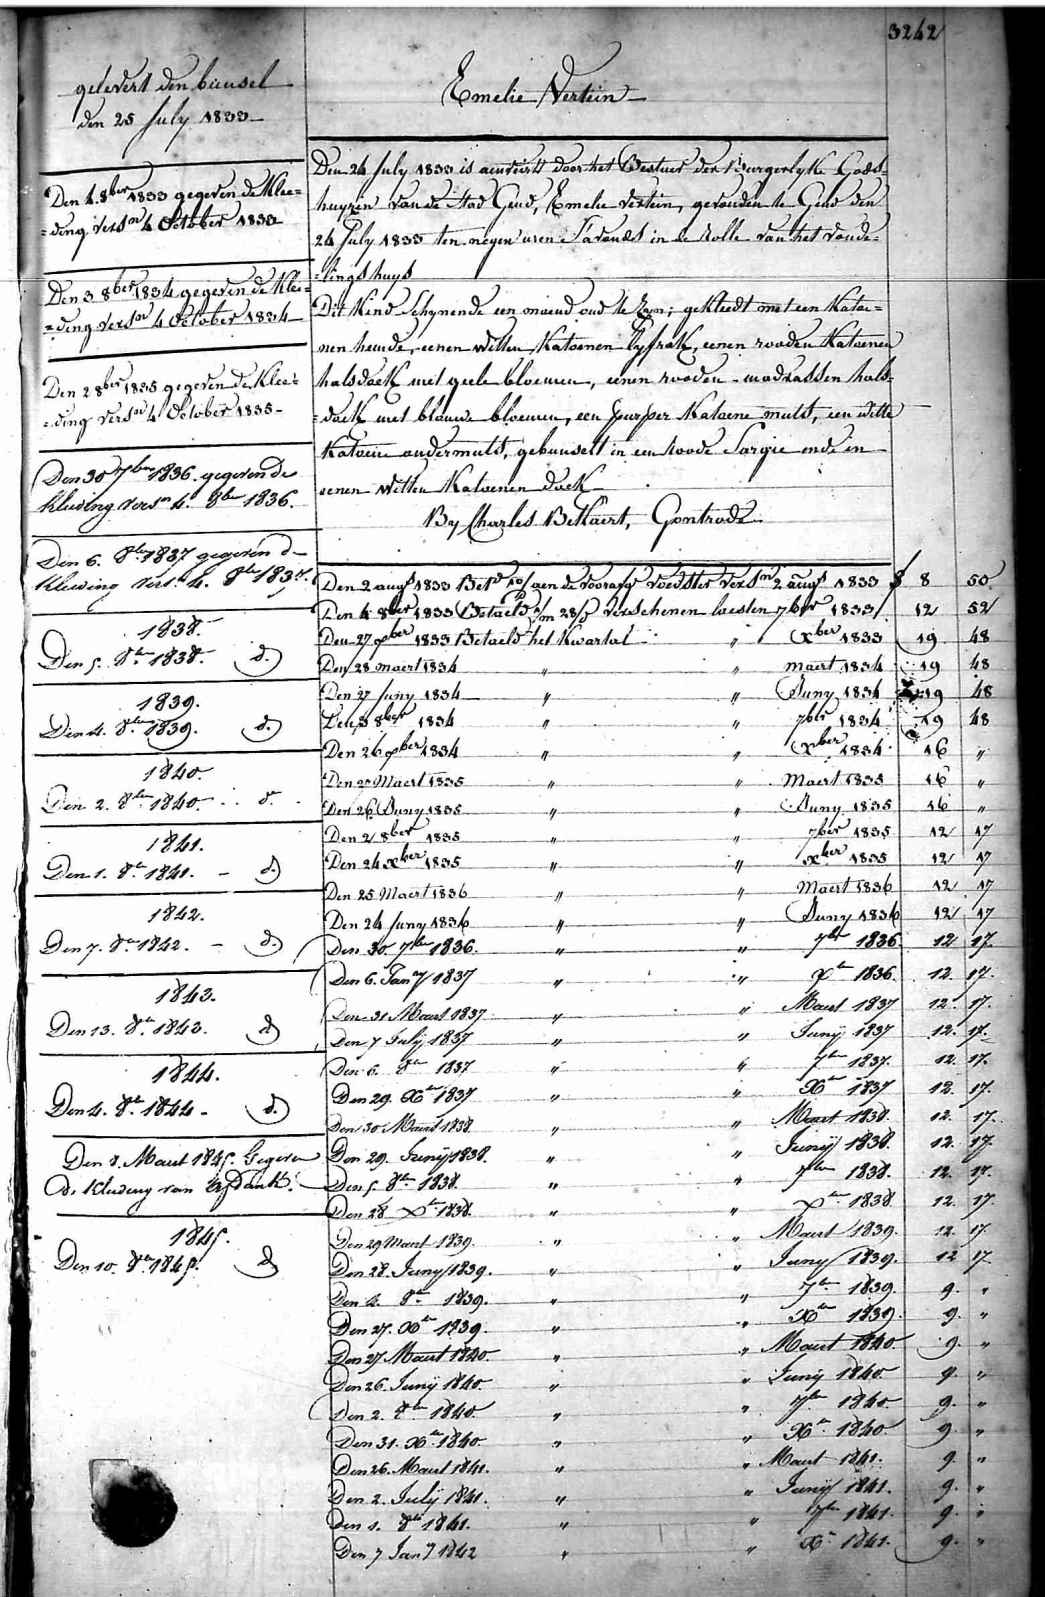 3242
gelevert den bunsel
den 25 July 1833
Den 4 8ber 1833 gegeven de Klee=
=ding versn 4 October 1833
Den 3 8ber 1834 gegeven de Klee=
=ding versn 4 October 1834
Den 2 8ber 1835 gegeven de Klee=
=ding versn 4 October 1835
Den 30 7ber 1836. gegeven de
kleeding versn 4. 8ber 1836.
Den 6. 8ber 1837 gegeven d
kleeding versn 4. 8ber 1837.
1838.
Den 5. 8ber 1838. d.
1839.
Den 4. 8ber 1839. d.
1840.
Den 2. 8ber 1840 d.
1841.
Den 1. 8ber 1841. - d.
1842.
Den 7. 8ber 1842. - d.
1843.
Den 13. 8ber 1843. d
1844.
Den 4. 8ber 1844 - d.
Den 8. Maert 1845. Gegeven
de kleeding van
1845.
Den 10. 8ber 1845. d
Emelie Vertein
Den 24 July 1833 is aenveirt door het Bestuer der Burgerlyke Gods=
huyzen van de Stad Gend, Emelie vertein, gevonden te Gend den
24 July 1833 ten negen uren S'avonds in de Rolle van het vonde=
=lings huys
Dit Kind Schynende een maend oud te Zyn; gekleedt met een Katoe=
nen hemde, eenen witten Katoenen lyfrak, eenen rooden Katoenen
halsdoek met geele bloemen, eenen rooden madrassen hals=
=doek met blauwe bloemen, een purper Katoene muts, een witte
Katoene ondermuts, gebunselt in een roode Sargie ende in
eenen witten Katoenen doek
By Charles Bekaert, Gontrode
Den 2 augt 1833 Betd aen de voorafg voedster versn 2 augt 1833 8 50
Den 4 8ber 1833 Betaeld verschenen laesten 7ber 1833 12 52
Den 27 xber 1833 Betaeld het Kwartal " Xber 1833 19 48
Den 28 maert 1834 " " maert 1834 19 48
Den 27 Juny 1834 " " Juny 1834 19 48
Den 3 8ber 1834 " " 7ber 1834 19 48
Den 26 xber 1834 " " Xber 1834 16 "
Den Maert 1835 " " Maert 1835 16 "
Den 26 Juny 1835 " " Juny 1835 16 "
Den 2 8ber 1835 " " 7ber 1835 12 17
Den 24 xber 1835 " " xber 1835 12 17
Den 25 Maert 1836 " " Maert 1836 12 17
Den 24 Juny 1836 " " Juny 1836 12 17
Den 30. 7ber 1836. " " 7ber 1836. 12 17.
Den 6. Jany 1837 " " Xber 1836. 12. 17.
Den 31 Maert 1837 " " Maert 1837 12. 17.
Den 7 July 1837 " " Juny 1837 12. 17.
Den 6. 8ber 1837 " " 7ber 1837. 12. 17.
Den 29. Xber 1837 " " Xber 1837 12. 17.
Den 30 Maert 1838. " " Maert 1838. 12. 17.
Den 29. Juny 1838. " " Juny 1838. 12. 17
Den 5. 8ber 1838. " " 7ber 1838. 12. 17.
Den 28 Xber 1838. " " Xber 1838 12. 17.
Den 29 Maert 1839. " " Maert 1839. 12. 17.
Den 28. Juny 1839. " " Juny 1839. 12 17
Den 4. 8ber 1839. " " 7ber 1839. 9. "
Den 27. Xber 1839. " " Xber 1839. 9. "
Den 27 Maert 1840. " " Maert 1840. 9. "
Den 26. Juny 1840. " " Juny 1840. 9. "
Den 2. 8ber 1840. " " 7ber 1840. 9. "
Den 31. Xber 1840. " " Xber 1840. 9 "
Den 26. Maert 1841. " " Maert 1841. 9. "
Den 2. July 1841. " " Juny 1841. 9. "
Den 1. 8ber 1841. " " 7ber 1841. 9. "
Den 7 Jany 1842 " " Xber 1841. 9. "